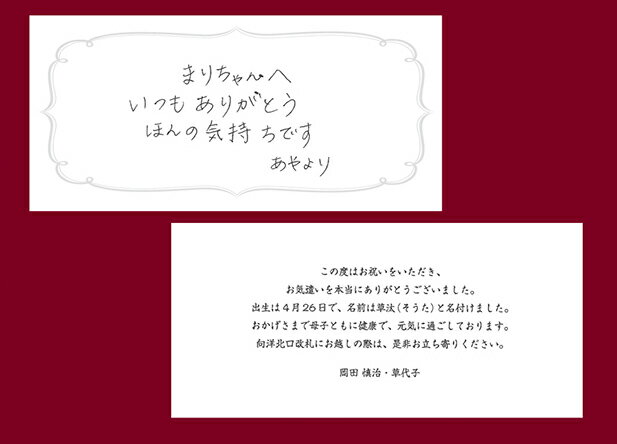 まりちゃんへ
いつもありがとう
ほんの気持ちです
あやより
この度はお祝いをいただき、
お気遣いを本当にありがとうございました。
出生は4月26日で、名前は草汰(そうた)と名付けました。
おかげさまで母子ともに健康で、元気に過ごしております。
向洋北口改札にお越しの際は、是非お立ち寄りください。
岡田 慎治・草代子